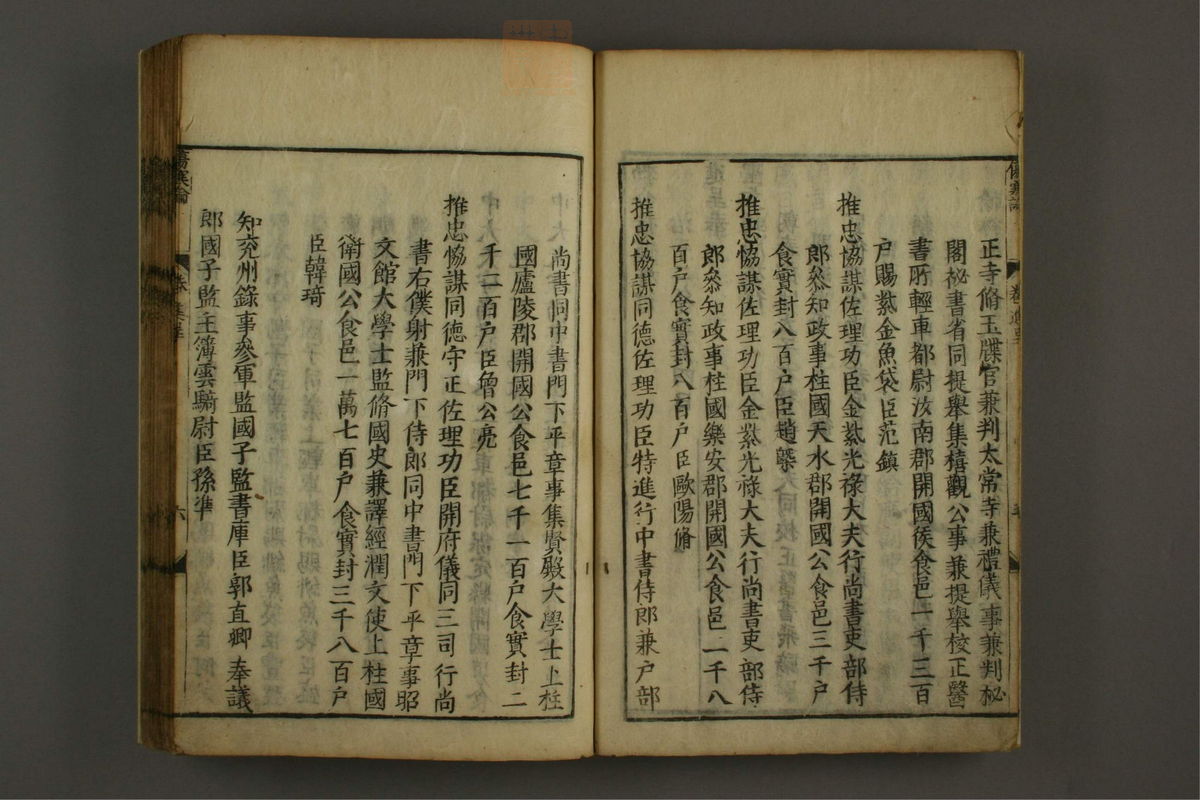 正寺脩玉牒官兼判太常寺兼禮儀事兼判秘
閣秘書省同提舉集禧觀公事兼提舉校正醫
書所輕車都尉汝南郡開國侯食邑一千三百
户賜紫金魚袋臣范鎮
推忠恊謀佐理功臣金紫光祿大夫行尚書吏部侍
郎叅知政事柱國天水郡開國公食邑三千户
食實封八百户臣趙槩
推忠恊謀佐理功臣金紫光祿大夫行尚書吏部侍
郎叅知政事柱國樂安郡開國公食邑二千八
百户食實封八百户臣歐陽脩
推忠協謀同德佐理功臣特進行中書侍郎兼户部
尚書同中書門下平章事集賢殿大學士上柱
國廬陵郡開國公食邑七千一百户食實封二
千二百户臣曾公亮
推忠恊謀同德守正佐理功臣開府儀同三司行尚
書右僕射兼門下侍郎同中書門下平章事昭
文館大學士監脩國史兼譯經潤文使上柱國
衛國公食邑一萬七百户食實封三千八百户
臣韓琦
知兖州錄事參軍監國子監書庫臣郭直卿 奉議
郎國子監主簿雲騎尉臣孫準
傷寒論
六